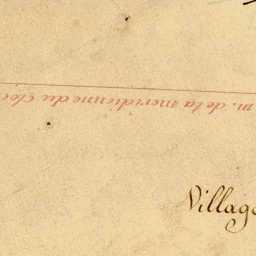 m. de la meridienne du cloc
Village